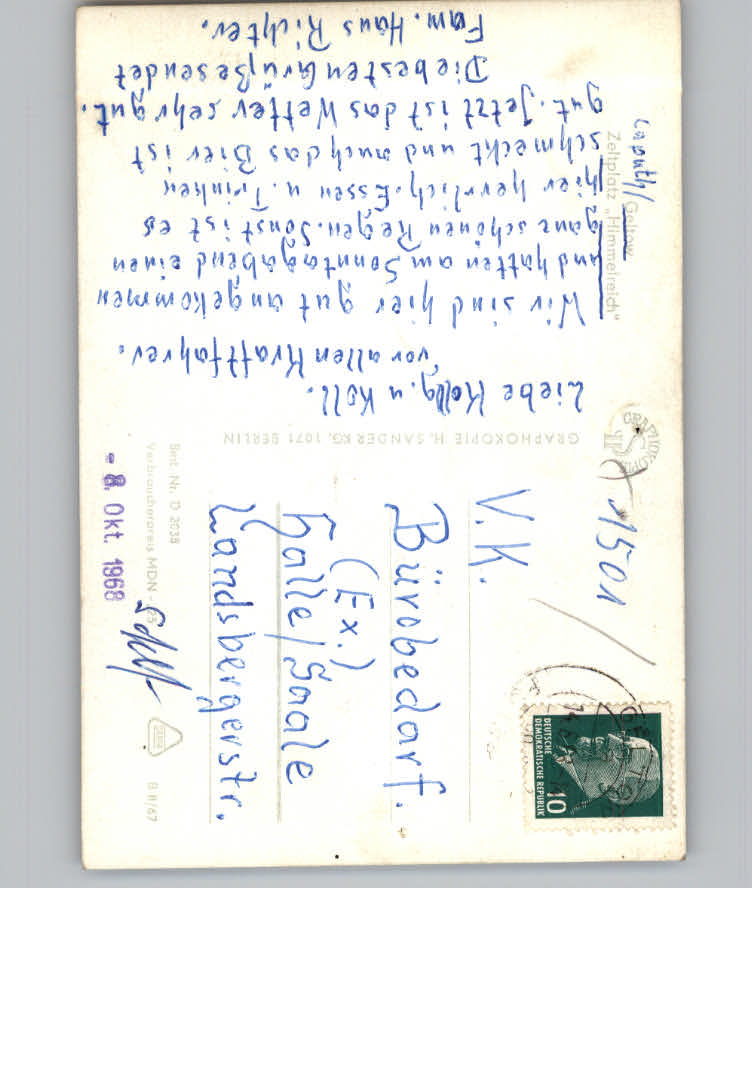 Caputh/
Geltow
Zeltplatz „Himmelreich"
Liebe Kolg. u Koll.
vor allen Kraftfahrer.
Wir sind hier gut angekommen
und hatten am Sonntagabend einen
ganz schönen Regen. Sonst ist es
hier herrlich. Essen u. Trinken
schmeckt und auch das Bier ist
gut. Jetzt ist das Wetter sehr gut.
Die besten Grüße sendet
Fam. Hans Richter.
GRAPHOKOPIE
GRAPHOKOPIE H. SANDER KG, 1071 BERLIN
1501
DEUTSCHE
DEMOKRATISCHE REPUBLIK
10
V.K.
Bürobedarf.
(Ex.)
Halle/Saale
Landsbergerstr.
Best. Nr. D 2038
Verbraucherpreis MDN -,25
B 11/67
- 8. Okt. 1968